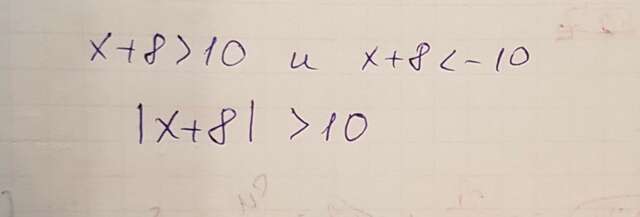 x+8>10 и x+8<-10
|x+8| >10